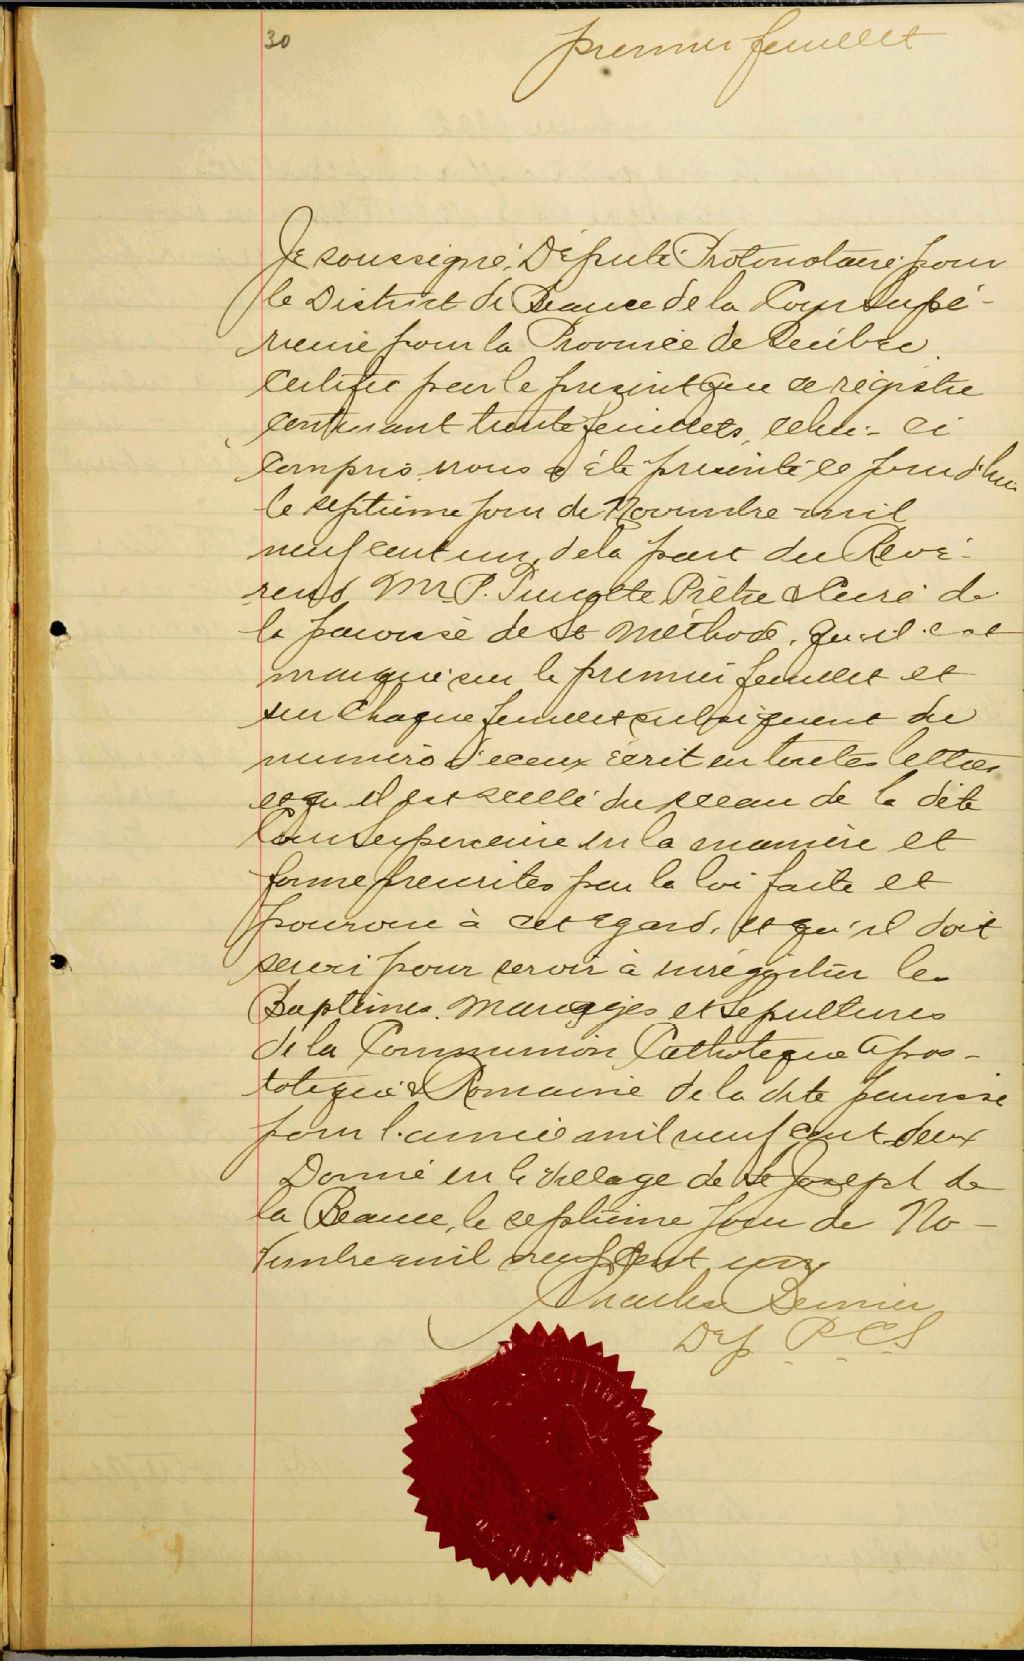 30
premier feuillet
Je soussigné, Député Protonotaire pour
le District de Beauce de la Cour Supé-
rieure pour la Province de Québec
certifie par le présent que ce registre
contenant trente feuillets, celui-ci
compris nous a été présenté ce jourd'hui
le septième jour de Novembre mil
neuf cent un, de la part du Révé-
rend Mr P. Turcotte Prêtre & Curé de
la paroisse de St Méthode, qu'il est
marqué sur le premier feuillet et
sur chaque feuillet subséquent du
numéro d'iceux écrit en toutes lettres
et qu'il est scellé du sceau de la dite
Cour Supérieure en la manière et
forme prescrites par la loi faite et
pourvue à cet égard, et qu'il doit
servir pour servir à enrégistrer les
Baptêmes, Mariages et Sépultures
de la Communion Catholique Apos-
tolique & Romaine de la dite paroisse
pour l'année mil neuf cent deux
Donné en le village de St Joseph de
la Beauce, le septième jour de No-
vembre mil neuf cent un
Charles Bernier
Dép P. C. S